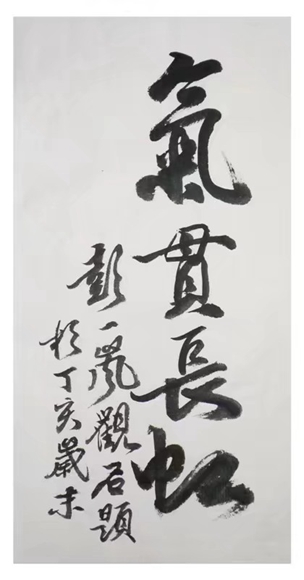 氣貫長虹
彭一嵐觀石題
於丁亥歲末